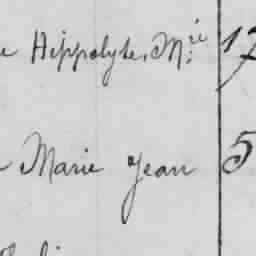 Hippolyte, M.ie 17
Marie Jean 5